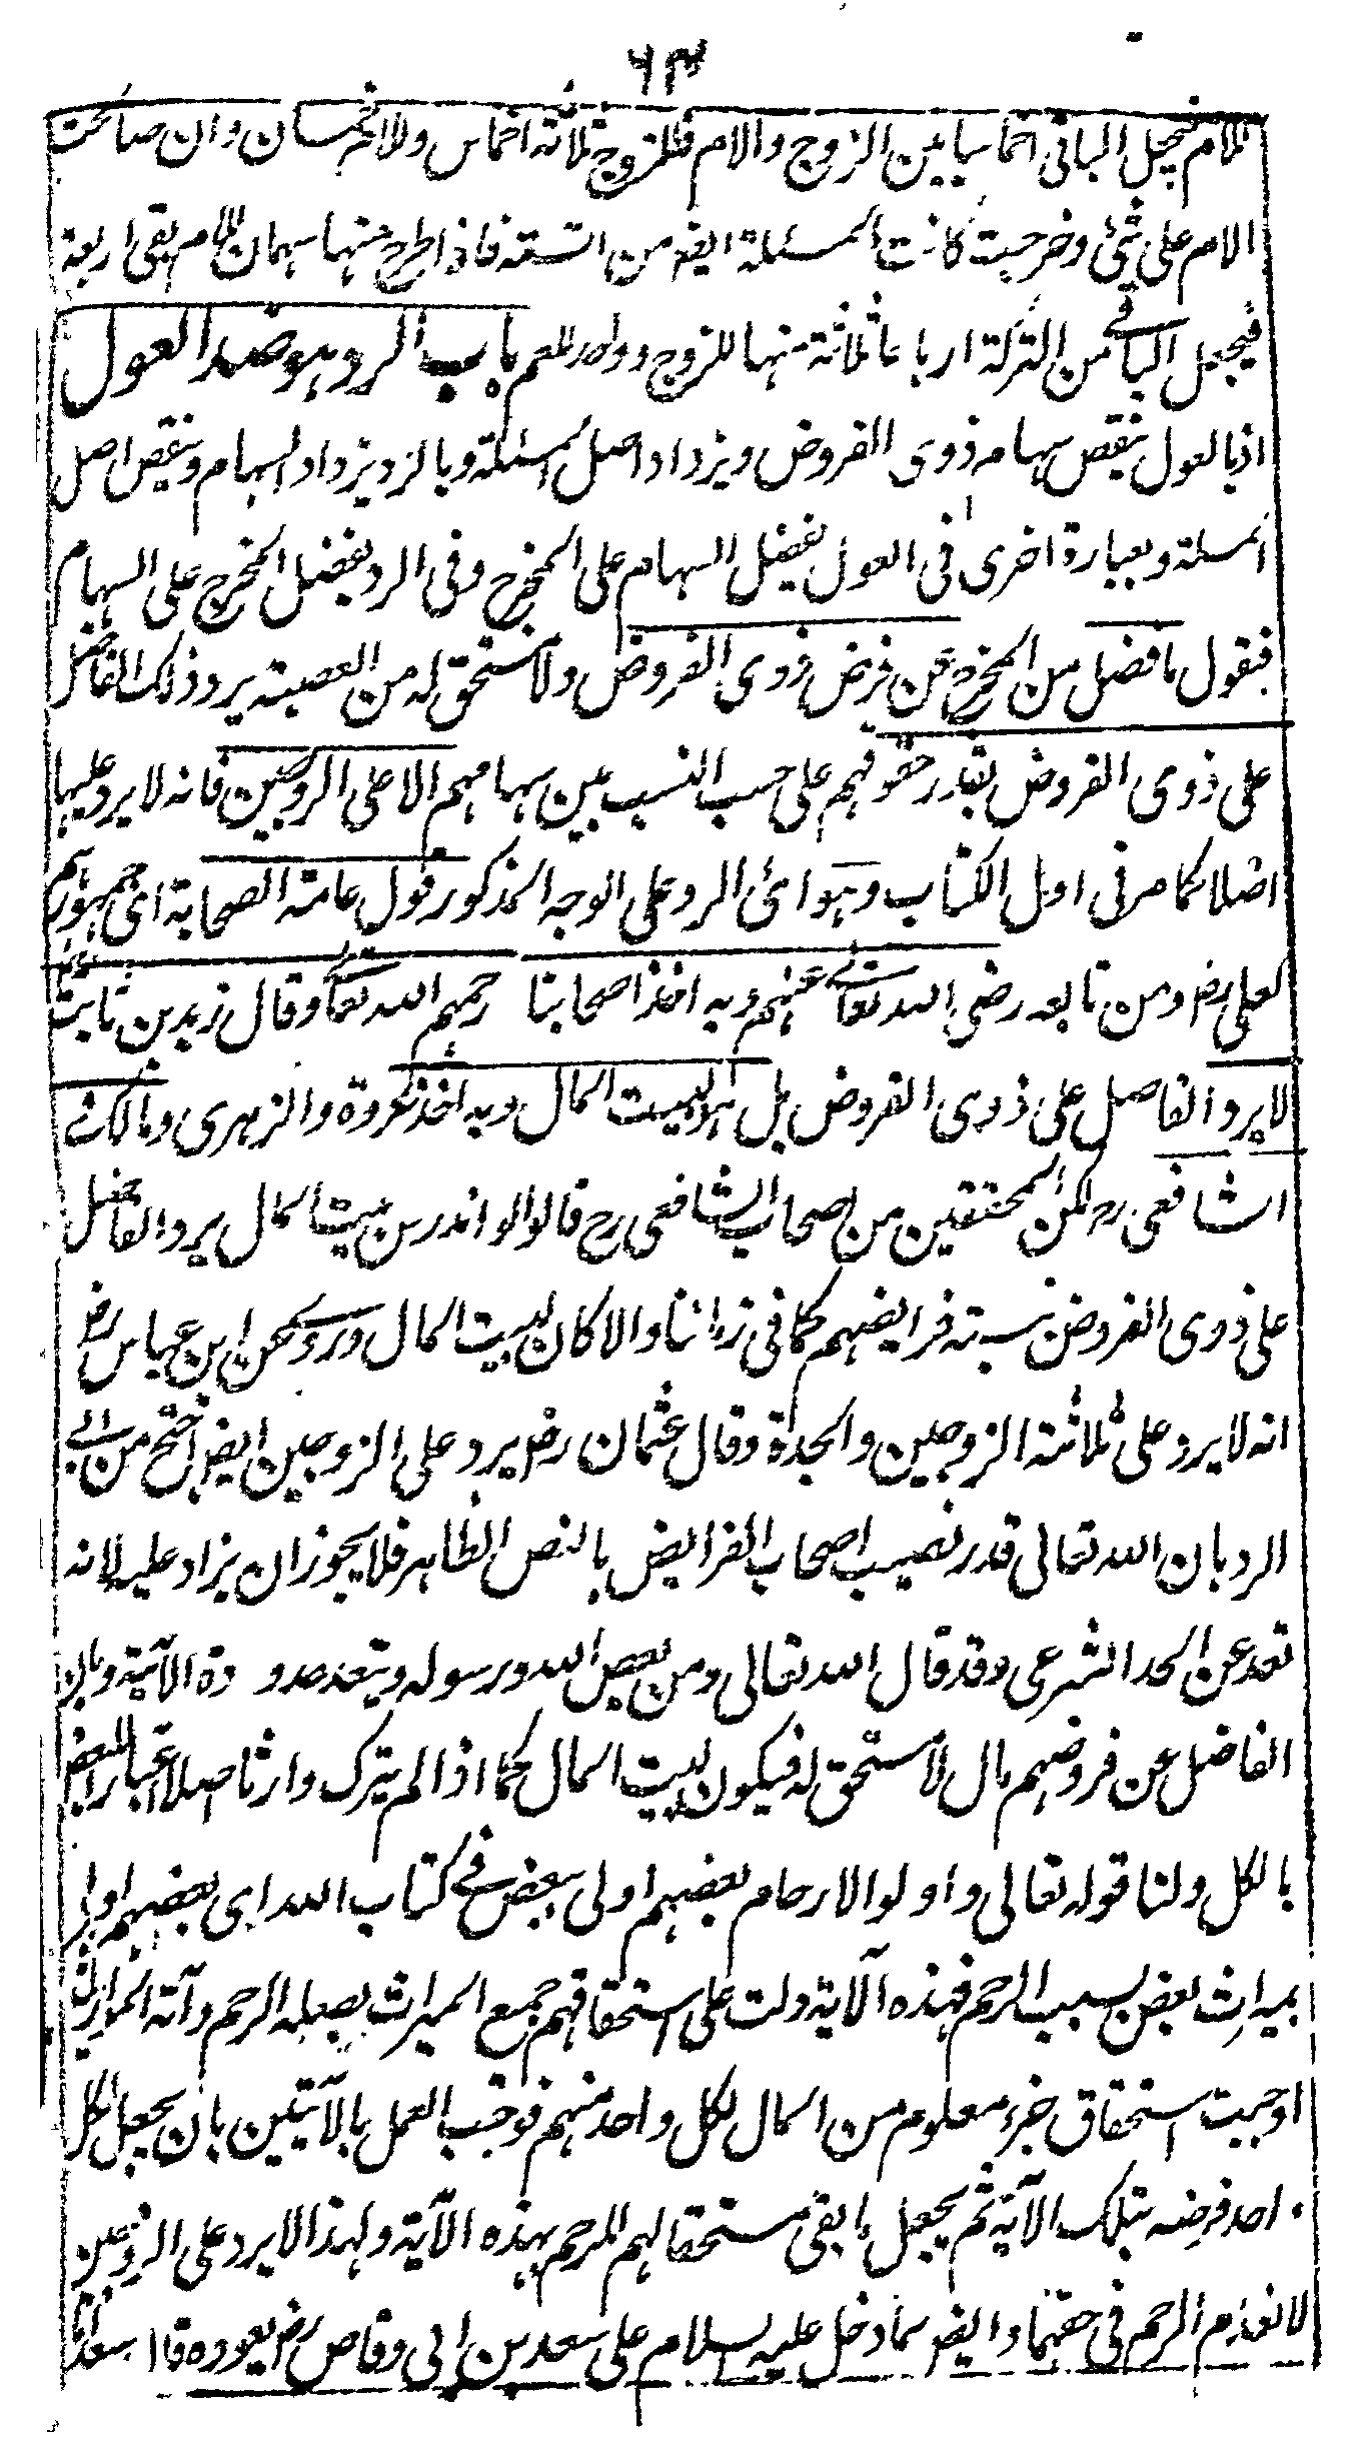 ٦٣
للام فيجعل الباقي اخماسا بين الزوج والام فللزوج ثلاثة اخماس وللام خمسان وان صالحت
الام على شئ وخرجت كانت المسئلة ايضا من الستة فاذا طرح منها سهمان للام بقى اربعة
فيجعل الباقى من التركة ارباعا ثلاثة منها للزوج وواحد للعم باب الرد وهو ضد العول
اذ بالعول ينقص سهام ذوى الفروض ويزداد اصل المسئلة وبالرد يزداد السهام وينقص اصل
المسئلة وبعبارة اخرى فى العول يفضل السهام على المخرج وفى الرد يفضل المخرج على السهام
فنقول ما فضل من المخرج عن فرض ذوى الفروض ولا مستحق له من العصبة يرد ذلك الفاضل
على ذوى الفروض بقدر حقوقهم على حسب النسب بين سهامهم الا على الزوجين فانه لا يرد عليهما
اصلا كما مر فى اول الكتاب وهو اى الرد على الوجه المذكور قول عامة الصحابة اى جمهورهم
كعلى رض ومن تابعه رضى الله تعالى عنهم وبه اخذ اصحابنا رحمهم الله تعالى وقال زيد بن ثابت
لا يرد الفاضل على ذوى الفروض بل هو لبيت المال وبه اخذ عروة والزهرى ومالك
الشافعى رح لكن المحققين من اصحاب الشافعى رح قالوا لو اندرس بيت المال يرد الفاضل
على ذوى الفروض نسبة فرايضهم كما فى زماننا والا كان لبيت المال وروى عن ابن عباس رض
انه لا يرد على ثلاثة الزوجين والجدة وقال عثمان رض يرد على الزوجين ايضا احتج من ابى
الرد بان الله تعالى قدر نصيب اصحاب الفرايض بالنص الظاهر فلا يجوز ان يزاد عليه لانه
تعد عن الحد الشرعى وقد قال الله تعالى ومن يعص الله ورسوله ويتعد حدوده الآية وبان
الفاضل عن فروضهم مال لا مستحق له فيكون لبيت المال كما اذا لم يترك وارثا اصلا اعتبارا للبعض
بالكل ولنا قوله تعالى واولوا الارحام بعضهم اولى ببعض فى كتاب الله اى بعضهم اولى
بميراث بعض بسبب الرحم فهذه الآية دلت على استحقاقهم جميع الميراث بصلة الرحم وآية المواريث
اوجبت استحقاق جزء معلوم من المال لكل واحد منهم فوجب العمل بالآيتين بان يجعل لكل
واحد فرضه بتلك الآية ثم يجعل ما بقى مستحقا لهم للرحم بهذه الآية ولهذا لا يرد على الزوجين
لانعدام الرحم فى حقهما وايضا لما دخل عليه السلام على سعد بن ابى وقاص رض يعوده قال سعد